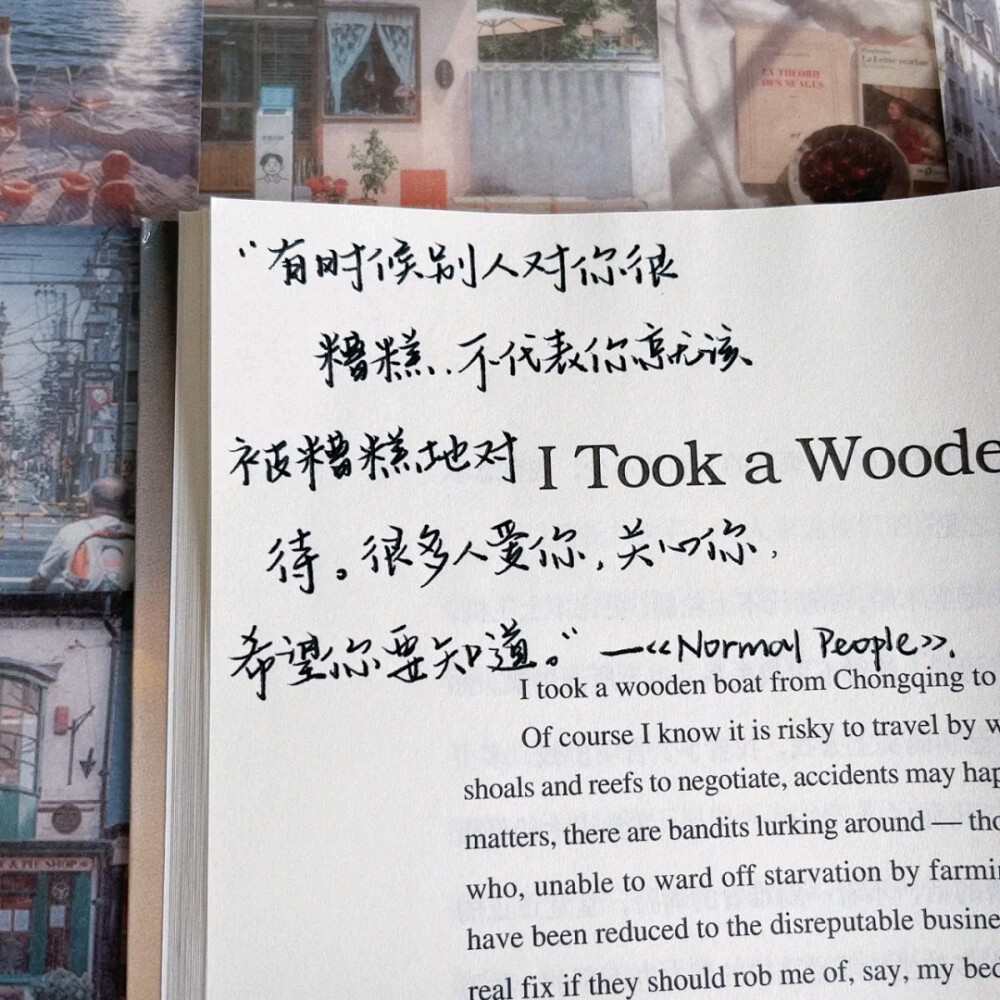 LA THÉORIE
DES NUAGES
La Lettre écarlate
“有时候别人对你很
糟糕.不代表你就应该
被糟糕地对
I Took a Woode
待。很多人爱你,关心你,
希望你要知道。”—《Normal People》.
I took a wooden boat from Chongqing to
Of course I know it is risky to travel by w
shoals and reefs to negotiate, accidents may hap
matters, there are bandits lurking around — tho
who, unable to ward off starvation by farmin
have been reduced to the disreputable busine
real fix if they should rob me of, say, my bed
& PIE SHOP